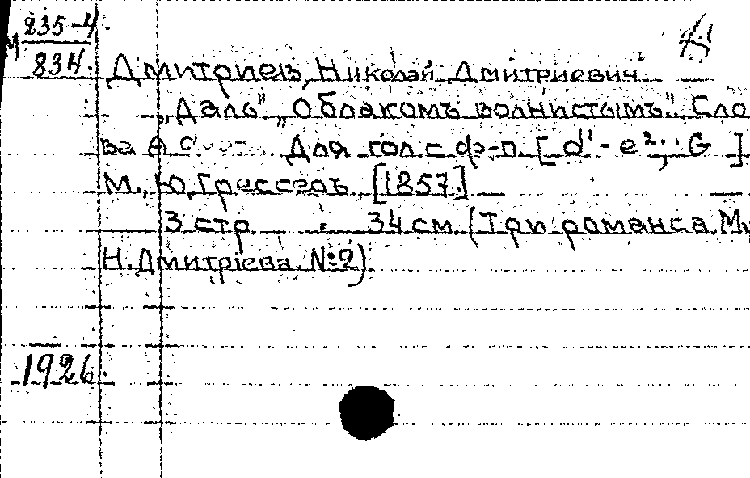 М 235-4
834.
Дмитриев, Николай Дмитриевич
„Даль" „Облакомъ волнистымъ" Сло
ва А Для гол. с ф-п. [d' - e²; G ]
М., Ю. Грессеръ [1857.]
3 стр. 34 см. (Три романса
Н. Дмитріева №2)
1926